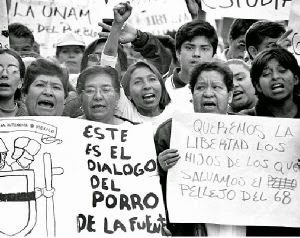 LA UNAM
LIB
ESTUDIA
ESTE
ES EL
DIALOGO
DEL
PORRO
DE LA FUENTE
QUEREMOS LA
LIBERTAD LOS
HIJOS DE LOS QUE
SALVAMOS EL
PELLEJO DEL 68